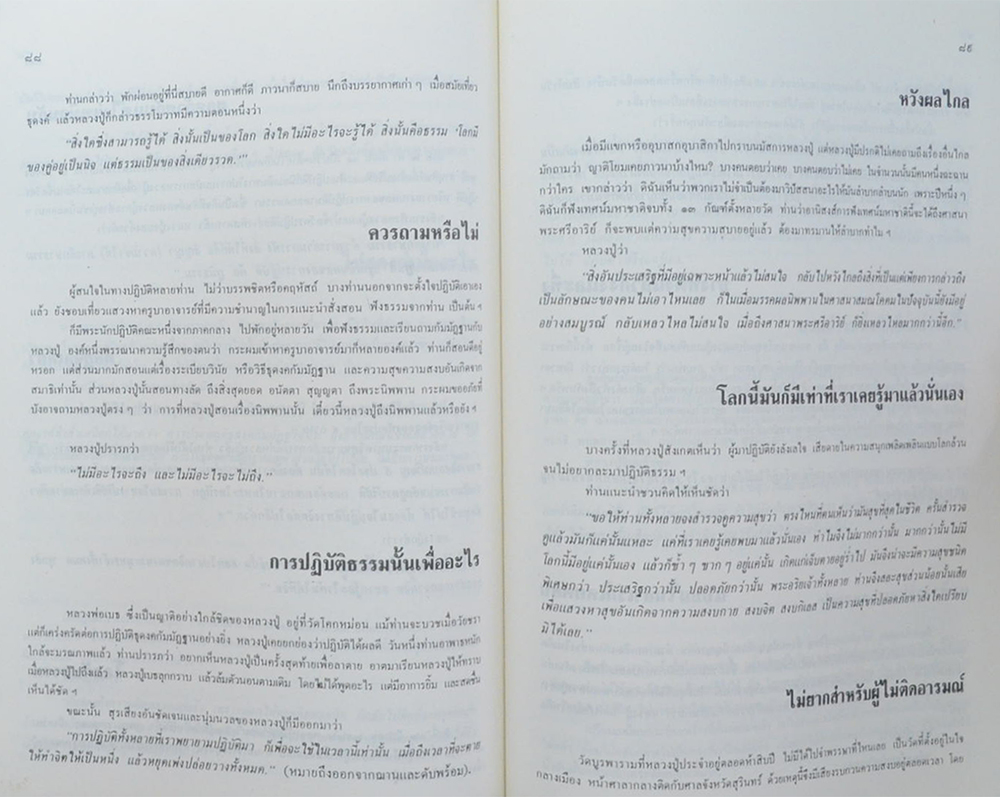 ๘๘
ท่านกล่าวว่า พักผ่อนอยู่ที่นี่สบายดี อากาศก็ดี ภาวนาก็สบาย นึกถึงบรรยากาศเก่า ๆ เมื่อสมัยเที่ยว
ธุดงค์ แล้วหลวงปู่ก็กล่าวธรรมโวาทมีความตอนหนึ่งว่า
“สิ่งใดซึ่งสามารถรู้ได้ สิ่งนั้นเป็นของโลก สิ่งใดไม่มีอะไรจะรู้ได้ สิ่งนั้นคือธรรม ‘โลกมี
ของคู่อยู่เป็นนิจ แต่ธรรมเป็นของสิ่งเดียวรวด.’”
ควรถามหรือไม่
ผู้สนใจในทางปฏิบัติหลายท่าน ไม่ว่าบรรพชิตหรือคฤหัสถ์ บางท่านนอกจากจะตั้งใจปฏิบัติเอาเอง
แล้ว ยังชอบเที่ยวแสวงหาครูบาอาจารย์ที่มีความชำนาญในการแนะนำสั่งสอน ฟังธรรมจากท่าน เป็นต้น ฯ
ก็มีพระนักปฏิบัติคณะหนึ่งจากภาคกลาง ไปพักอยู่หลายวัน เพื่อฟังธรรมและเรียนถามกัมมัฏฐานกับ
หลวงปู่ องค์หนึ่งพรรณนาความรู้สึกของตนว่า กระผมเข้าหาครูบาอาจารย์มาก็หลายองค์แล้ว ท่านก็สอนดีอยู่
หรอก แต่ส่วนมากมักสอนแต่เรื่องระเบียบวินัย หรือวิธีธุดงค์กัมมัฏฐาน และความสุขความสงบอันเกิดจาก
สมาธิเท่านั้น ส่วนหลวงปู่นั้นสอนทางลัด ถึงสิ่งสุดยอด อนัตตา สุญญตา ถึงพระนิพพาน กระผมขออภัยที่
บังอาจถามหลวงปู่ตรง ๆ ว่า การที่หลวงปู่สอนเรื่องนิพพานนั้น เดี๋ยวนี้หลวงปู่ถึงนิพพานแล้วหรือยัง ฯ
หลวงปู่ปรารภว่า
“ไม่มีอะไรจะถึง และไม่มีอะไรจะไม่ถึง.”
การปฏิบัติธรรมนั้นเพื่ออะไร
หลวงพ่อเบธ ซึ่งเป็นญาติอย่างใกล้ชิดของหลวงปู่ อยู่ที่วัดโคกหม่อน แม้ท่านจะบวชเมื่อวัยชรา
แต่ก็เคร่งครัดต่อการปฏิบัติธุดงค์กัมมัฏฐานอย่างยิ่ง หลวงปู่เคยยกย่องว่าปฏิบัติได้ผลดี วันหนึ่งท่านอาพาธหนัก
ใกล้จะมรณภาพแล้ว ท่านปรารภว่า อยากเห็นหลวงปู่เป็นครั้งสุดท้ายเพื่อลาตาย อาตมาเรียนหลวงปู่ให้ทราบ
เมื่อหลวงปู่ไปถึงแล้ว หลวงปู่เบธลุกกราบ แล้วล้มตัวนอนตามเดิม โดยไม่ได้พูดอะไร แต่มีอาการยิ้ม และสดชื่น
เห็นได้ชัด ฯ
ขณะนั้น สุรเสียงอันชัดเจนและนุ่มนวลของหลวงปู่ก็มีออกมาว่า
“การปฏิบัติทั้งหลายที่เราพยายามปฏิบัติมา ก็เพื่อจะใช้ในเวลานี้เท่านั้น เมื่อถึงเวลาที่จะตาย
ให้ทำจิตให้เป็นหนึ่ง แล้วหยุดเพ่งปล่อยวางทั้งหมด.” (หมายถึงออกจากฌานและดับพร้อม).
๘๙
หวังผลไกล
เมื่อมีแขกหรืออุบาสกอุบาสิกาไปกราบนมัสการหลวงปู่ แต่หลวงปู่มีปรกติไม่เคยถามถึงเรื่องอื่นไกล
มักถามว่า ญาติโยมเคยภาวนาบ้างไหม? บางคนตอบว่าเคย บางคนตอบว่าไม่เคย ในจำนวนนั้นมีคนหนึ่งจะฉาน
กว่าใคร เขากล่าวว่า ดิฉันเห็นว่าพวกเราไม่จำเป็นต้องมาวิปัสสนาอะไรให้มันลำบากลำบนนัก เพราะปีหนึ่ง ๆ
ดิฉันก็ฟังเทศน์มหาชาติจบทั้ง ๑๓ กัณฑ์ตั้งหลายวัด ท่านว่าอานิสงส์การฟังเทศน์มหาชาตินี้จะได้ถึงศาสนา
พระศรีอาริย์ ก็จะพบแต่ความสุขความสบายอยู่แล้ว ต้องมาทรมานให้ลำบากทำไม ฯ
หลวงปู่ว่า
“สิ่งอันประเสริฐที่มีอยู่เฉพาะหน้าแล้วไม่สนใจ กลับไปหวังไกลถึงสิ่งที่เป็นแต่เพียงการกล่าวถึง
เป็นลักษณะของคนไม่เอาไหนเลย ก็ในเมื่อมรรคผลนิพพานในศาสนาสมณโคดมในปัจจุบันนี้ยังมีอยู่
อย่างสมบูรณ์ กลับเหลวไหลไม่สนใจ เมื่อถึงศาสนาพระศรีอาริย์ ก็ยิ่งเหลวไหลมากกว่านี้อีก.”
โลกนี้มันก็มีเท่าที่เราเคยรู้มาแล้วนั่นเอง
บางครั้งที่หลวงปู่สังเกตเห็นว่า ผู้มาปฏิบัติยังลังเลใจ เสียดายในความสนุกเพลิดเพลินแบบโลกล้วน
จนไม่อยากละมาปฏิบัติธรรม ฯ
ท่านแนะนำชวนคิดให้เห็นชัดว่า
“ขอให้ท่านทั้งหลายจงสำรวจดูความสุขว่า ตรงไหนที่ตนเห็นว่ามันสุขที่สุดในชีวิต ครั้นสำรวจ
ดูแล้วมันก็แค่นั้นแหละ แค่ที่เราเคยรู้เคยพบมาแล้วนั่นเอง ทำไมจึงไม่มากกว่านั้น มากกว่านั้นไม่มี
โลกนี้มีอยู่แค่นั้นเอง แล้วก็ซ้ำ ๆ ซาก ๆ อยู่แค่นั้น เกิดแก่เจ็บตายอยู่ร่ำไป มันจึงน่าจะมีความสุขชนิด
พิเศษกว่า ประเสริฐกว่านั้น ปลอดภัยกว่านั้น พระอริยเจ้าทั้งหลาย ท่านจึงสละสุขส่วนน้อยนั้นเสีย
เพื่อแสวงหาสุขอันเกิดจากความสงบกาย สงบจิต สงบกิเลส เป็นความสุขที่ปลอดภัยหาสิ่งใดเปรียบ
มิได้เลย.”
ไม่ยากสำหรับผู้ไม่ติดอารมณ์
วัดบูรพารามที่หลวงปู่ประจำอยู่ตลอดห้าสิบปี ไม่มีได้ไปจำพรรษาที่ไหนเลย เป็นวัดที่ตั้งอยู่ในใจ
กลางเมือง หน้าศาลากลางติดกับศาลจังหวัดสุรินทร์ ด้วยเหตุนี้จึงมีเสียงรบกวนความสงบอยู่ตลอดเวลา โดย